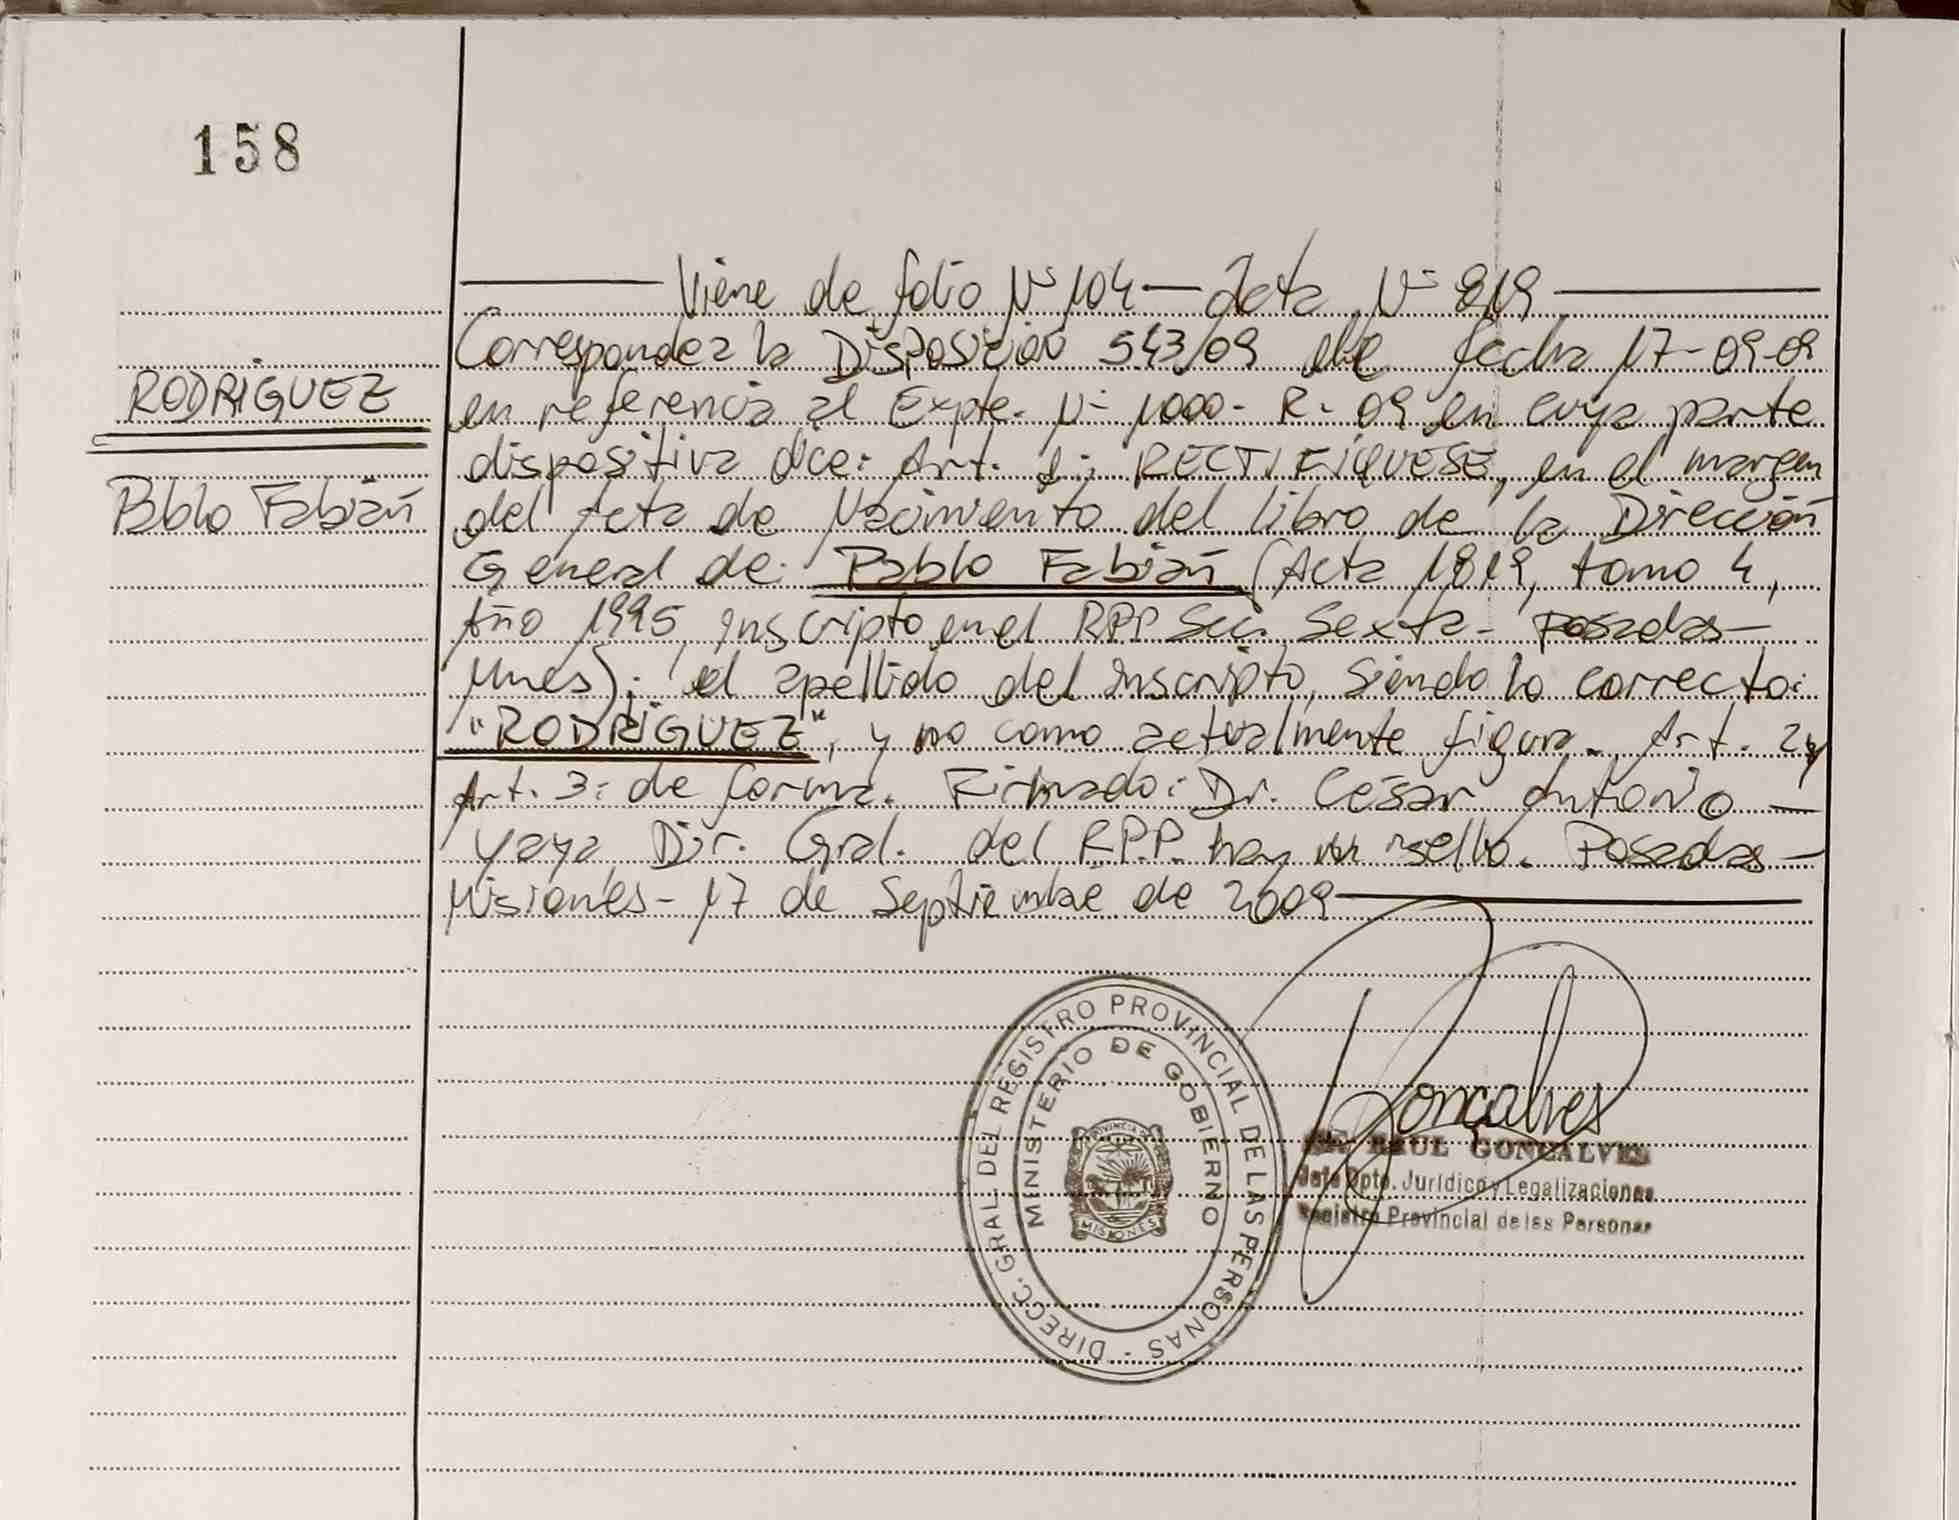 158
Viene de folio Nº 104 — Acta Nº 819
Corresponde a la Disposición 543/09 de fecha 17-09-09
RODRIGUEZ
en referencia al Expte. Nº 1000- R- 09 en cuya parte
dispositiva dice: Art. 1: RECTIFÍQUESE, en el margen
Pablo Fabián
del Acta de Nacimiento del libro de la Dirección
General de: Pablo Fabián (Acta 1819, tomo 4,
Año 1995, inscripto en el RPP Sec. Sexta - Posadas -
Mnes); el apellido del inscripto, siendo lo correcto:
"RODRIGUEZ", y no como actualmente figura. Art. 2 y
Art. 3: de forma. Firmado: Dr. César Antonio —
Yaya, Dir. Gral. del R.P.P. hay un sello. Posadas -
Misiones - 17 de Septiembre de 2009
DIRECC. GRAL DEL REGISTRO PROVINCIAL DE LAS PERSONAS -
MINISTERIO DE GOBIERNO
PROVINCIA DE
MISIONES
Gonçalves
RAUL GONCALVES
Jefe Dpto. Jurídico y Legalizaciones
Registro Provincial de las Personas